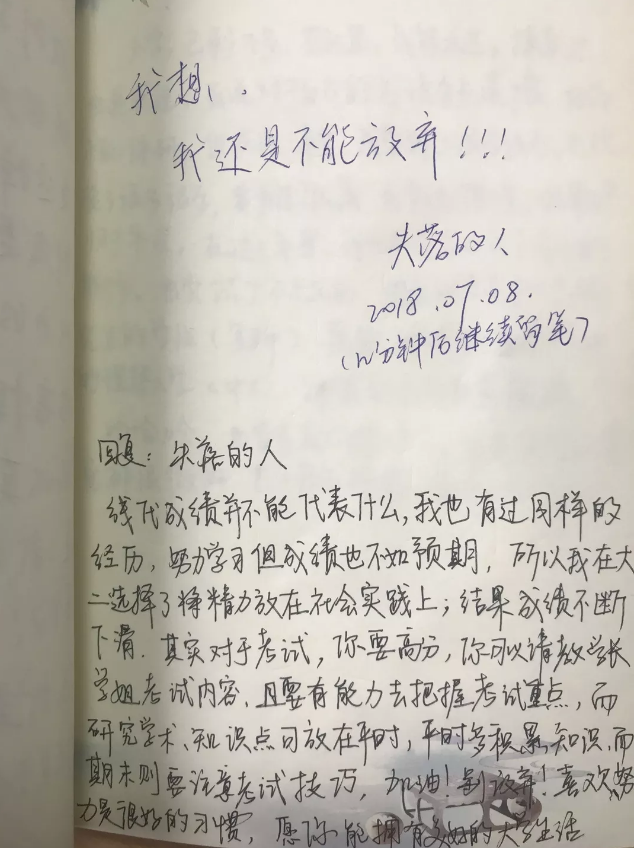 我想，.
我还是不能放弃！！！
失落的人
2018.07.08.
(n分钟后继续留笔)
回复：失落的人
线代成绩并不能代表什么，我也有过同样的
经历，努力学习但成绩也不如预期，所以我在大
二选择了将精力放在社会实践上；结果成绩不断
下滑．其实对于考试，你要高分，你可以请教学长
学姐考试内容．且要有能力去把握考试重点，而
研究学术、知识点可放在平时，平时多积累知识，而
期末则要注意考试技巧，加油！别放弃！喜欢努
力是很好的习惯，愿你能拥有美好的大学生活